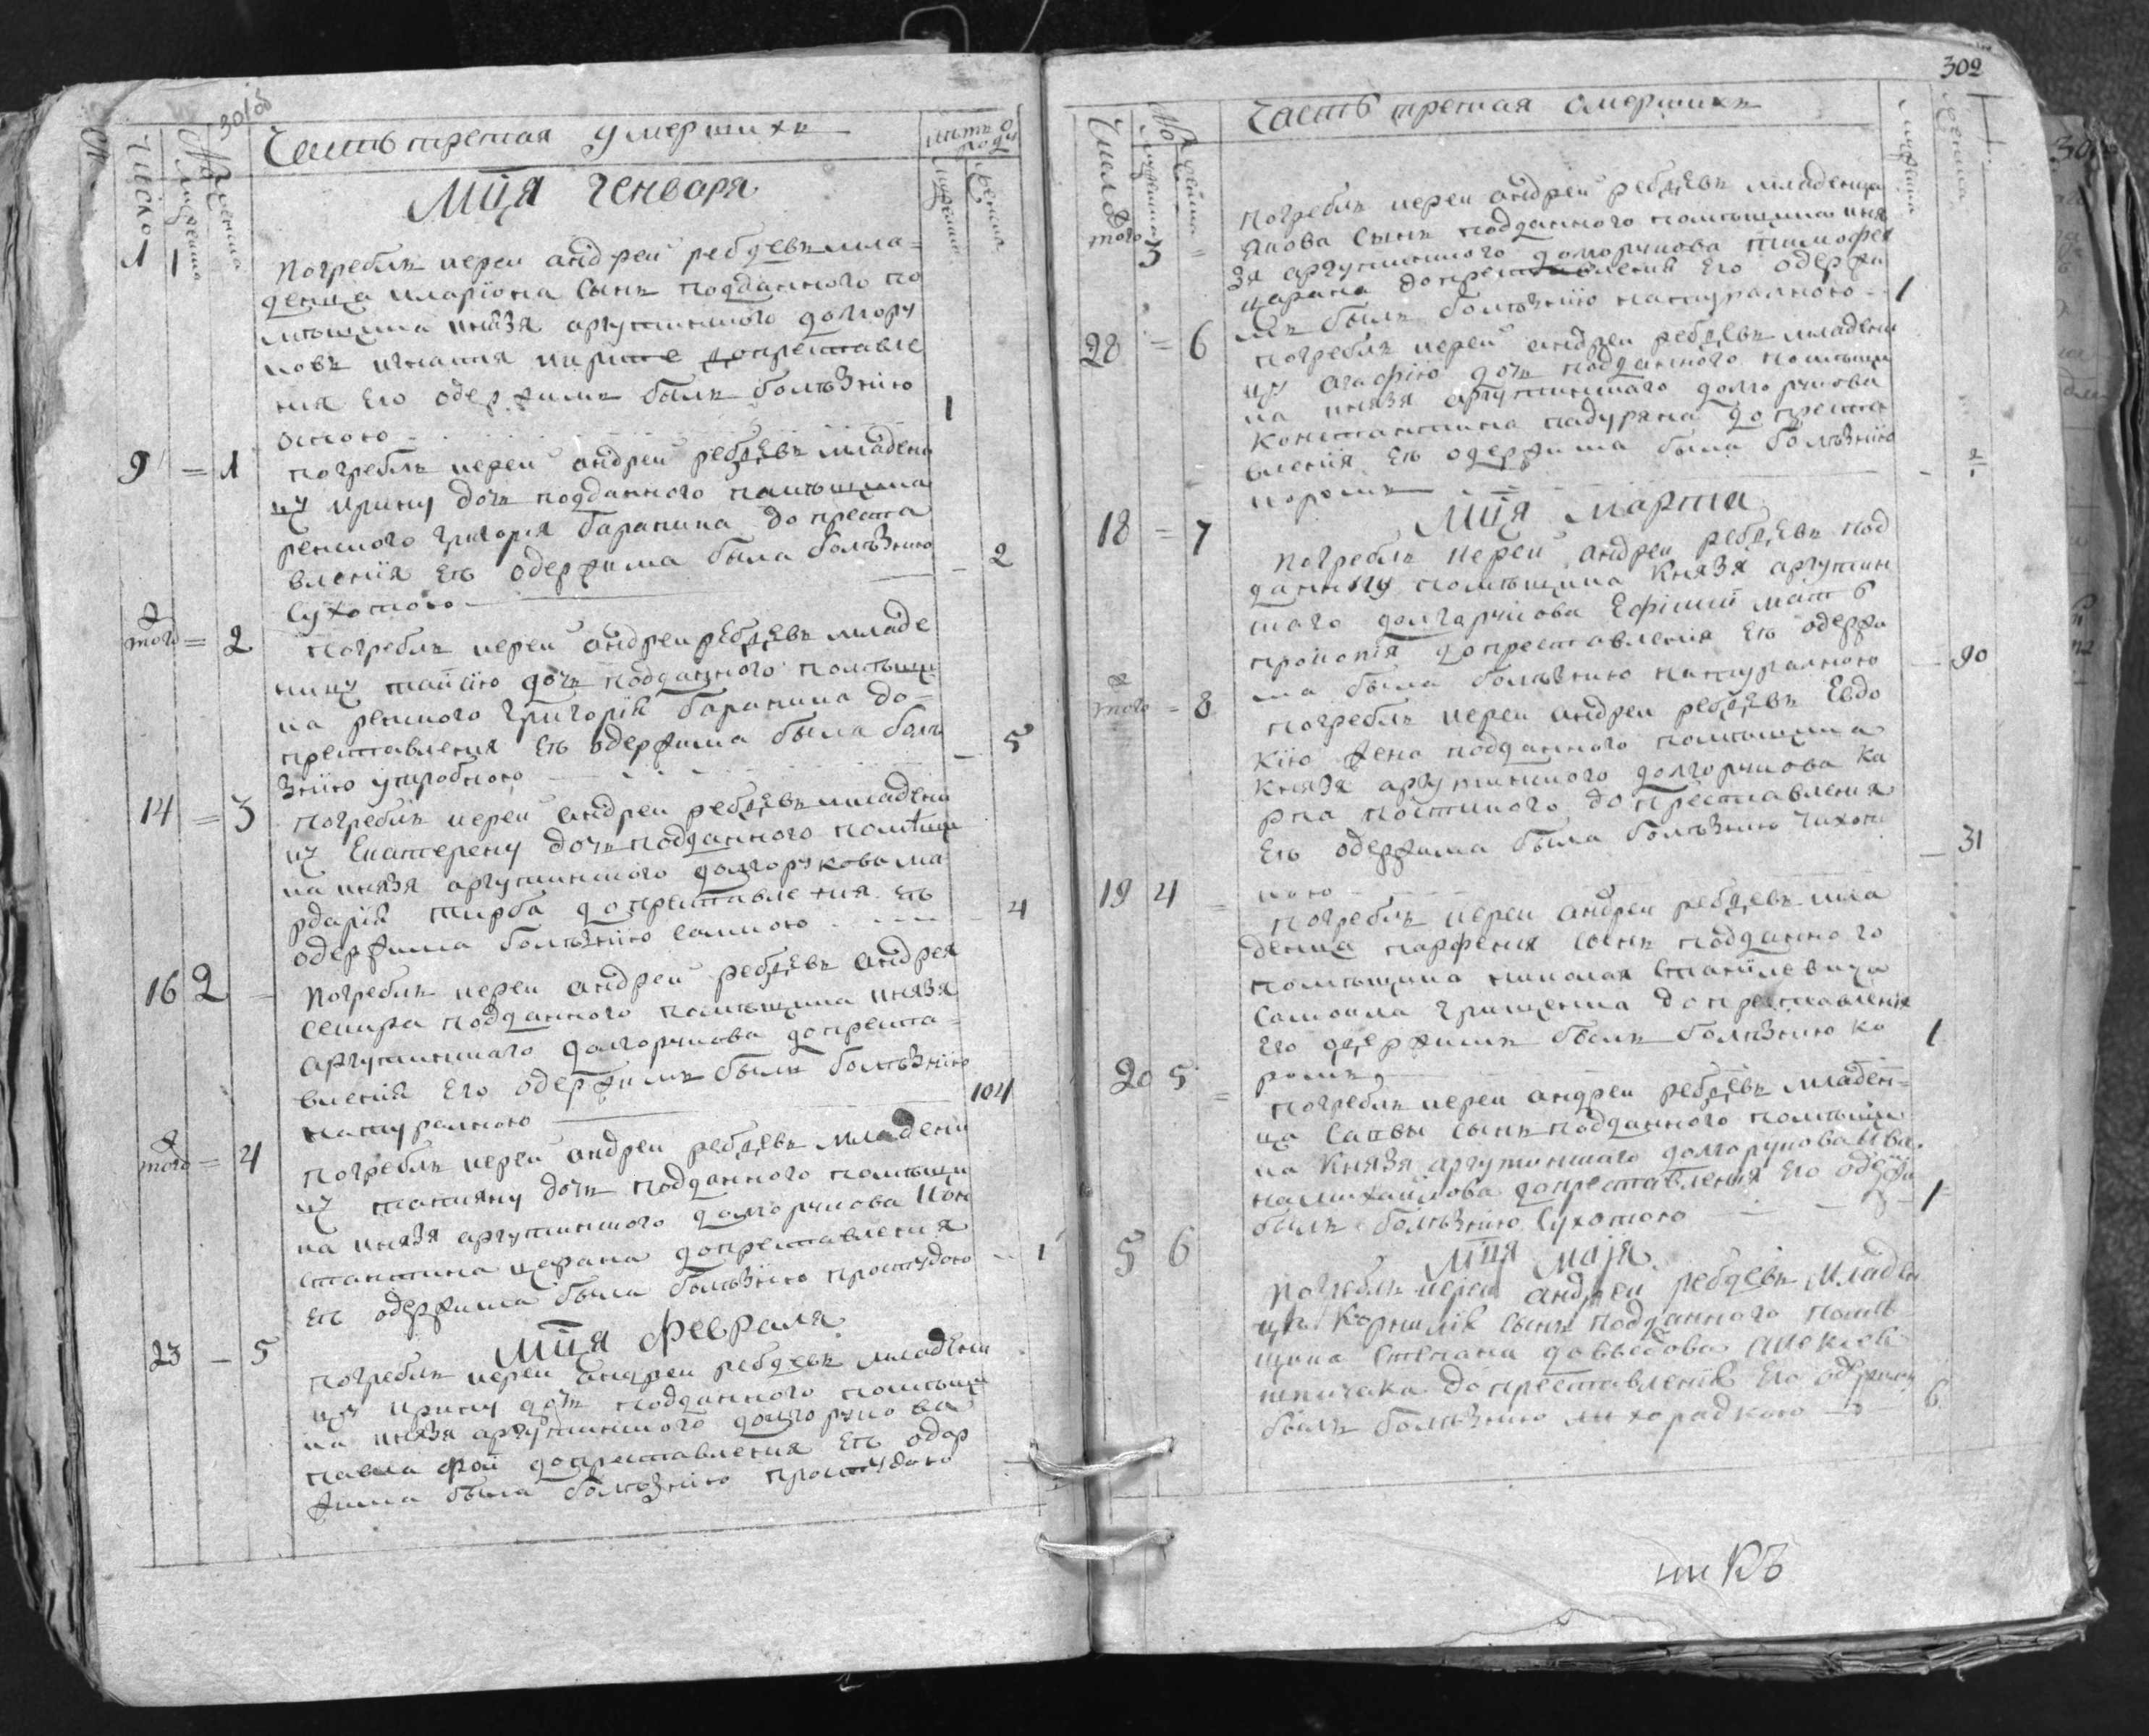 301об
Часть третая умершихъ
Число
№
мужеска
женска
лѣтъ о роду
мужеска
женска
Мц҃а генваря
1 1
Погребъ иереи андреи ребдевъ мла=
денца илариона сынъ подданного по
мѣщика князя аргутинского долгору
ковъ игнатия до преставле
ния его одержимъ былъ болѣзнию
оспою 1
9 = 1
погребъ иереи андреи ребдевъ младени
цу ирину дочъ подданного помѣщика
ренского григория бараника до преста
вления еѣ одержима была болѣзнию
сухотою 2
того = 2
погребъ иереи андреи ребдевъ младе
ницу таисию дочъ подданного помѣщи
ка ренского григория бараника до=
преставления еѣ одержима была болѣ
знию утробною 5
14 = 3
погребъ иереи андреи ребдевъ младени
цу екатерену дочъ подданного помѣщи
ка князя аргутинского долгорукова ма
рдария тирба до преставления еѣ
одержима болѣзнию 4
16 2
погребъ иереи андреи ребдевъ андрея
сенира подданного помѣщика князя
аргутинскаго долгорукова до преста=
вления его одержимъ былъ болѣзнию
натуралною 104
того = 4
погребъ иереи андреи ребдевъ младени
цу татияну дочъ подданного помѣщи
ка князя аргутинского долгорукова кон
стантина царана до преставления
еѣ одержима была болѣзнию простудою 1
Мц҃а февраля
23 – 5
погребъ иереи андреи ребдевъ младени
цу ирину дочъ подданного помѣщи
ка князя аргутинского долгорукова
павла фои до преставления еѣ одер
жима была болѣзнию простудою
302
Часть третая омершихъ
Число
№
мужеска
женска
мужеска
женска
того 3 =
погребъ иереи андреи ребдевъ младенца
якова сынъ подданного помѣщика кня
зя аргутинского долгорукова тимофея
царана до преставления его одержи
мъ былъ болѣзнию натуралною 1
28 = 6
погребъ иереи андреи ребдевъ младени
цу агафию дочъ подданного помѣщи
ка князя аргутинскаго долгорукова
константина падуряна до преста
вления еѣ одержима была болѣзнию
коромъ
Мц҃я марта
18 = 7
погребъ иереи андреи ребдевъ под
данну помѣщика князя аргутин
скаго долгорукова мать
прокопия до преставления еѣ одержи
ма была болѣзнию натуралною 90
того = 8
погребъ иереи андреи ребдевъ евдо
кию жена подданного помѣщика
князя аргутинского долгорукова ка
рпа постикого до преставления
еѣ одержима была болѣзнию чихот
кою 31
19 4 =
погребъ иереи андреи ребдевъ мла
денца парфения сынъ подданного
помѣщика николая
самоила грищенка до преставления
его одержимъ былъ болѣзнию ко
ромъ 1
20 5 =
погребъ иереи андреи ребдевъ младен=
ца савы сынъ подданного помѣщи
ка князя аргутинскаго долгорукова ива
на михаилова до преставления его одержи
былъ болѣзнию сухотою 1
Мц҃я маія
5 6
погребъ иереи андреи ребдевъ младен
ца корнилія сынъ подданного помѣ
щика степана давыдова алексея
до преставления его одержим
былъ болѣзнию лихорадкою 6